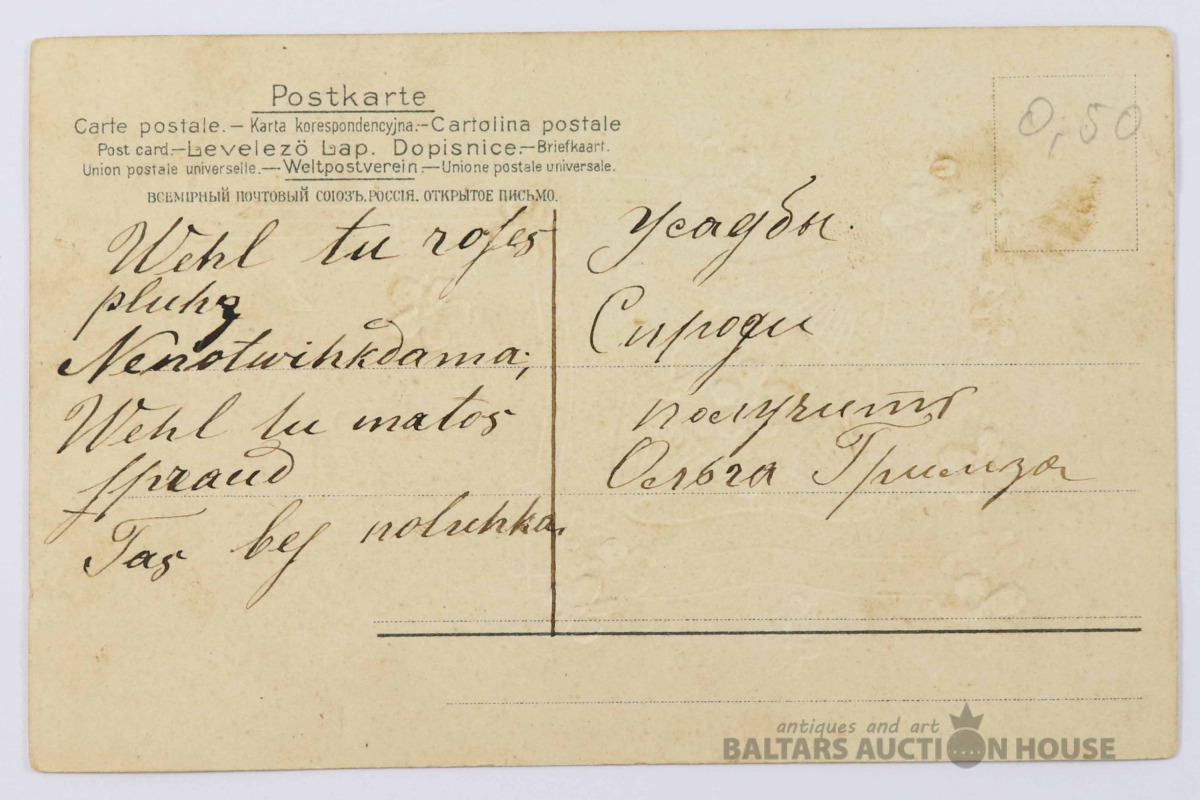 Postkarte
Carte postale.— Karta korespondencyjna.—Cartolina postale
Post card.—Levelező Lap. Dopisnice.—Briefkaart.
Union postale universelle.—Weltpostverein.—Unione postale universale.
ВСЕМІРНЫЙ ПОЧТОВЫЙ СОЮЗЪ.РОССІЯ. ОТКРЫТОЕ ПИСЬМО.
0,50
Wehl tu roſes
pluhz
Nenotwihkdama,
Wehl tu matos
ſpraud
Tas beſ noluhka.
Усадбы
Сироди
получить
Ольга Гримза
antiques and art
BALTARS AUCTION HOUSE